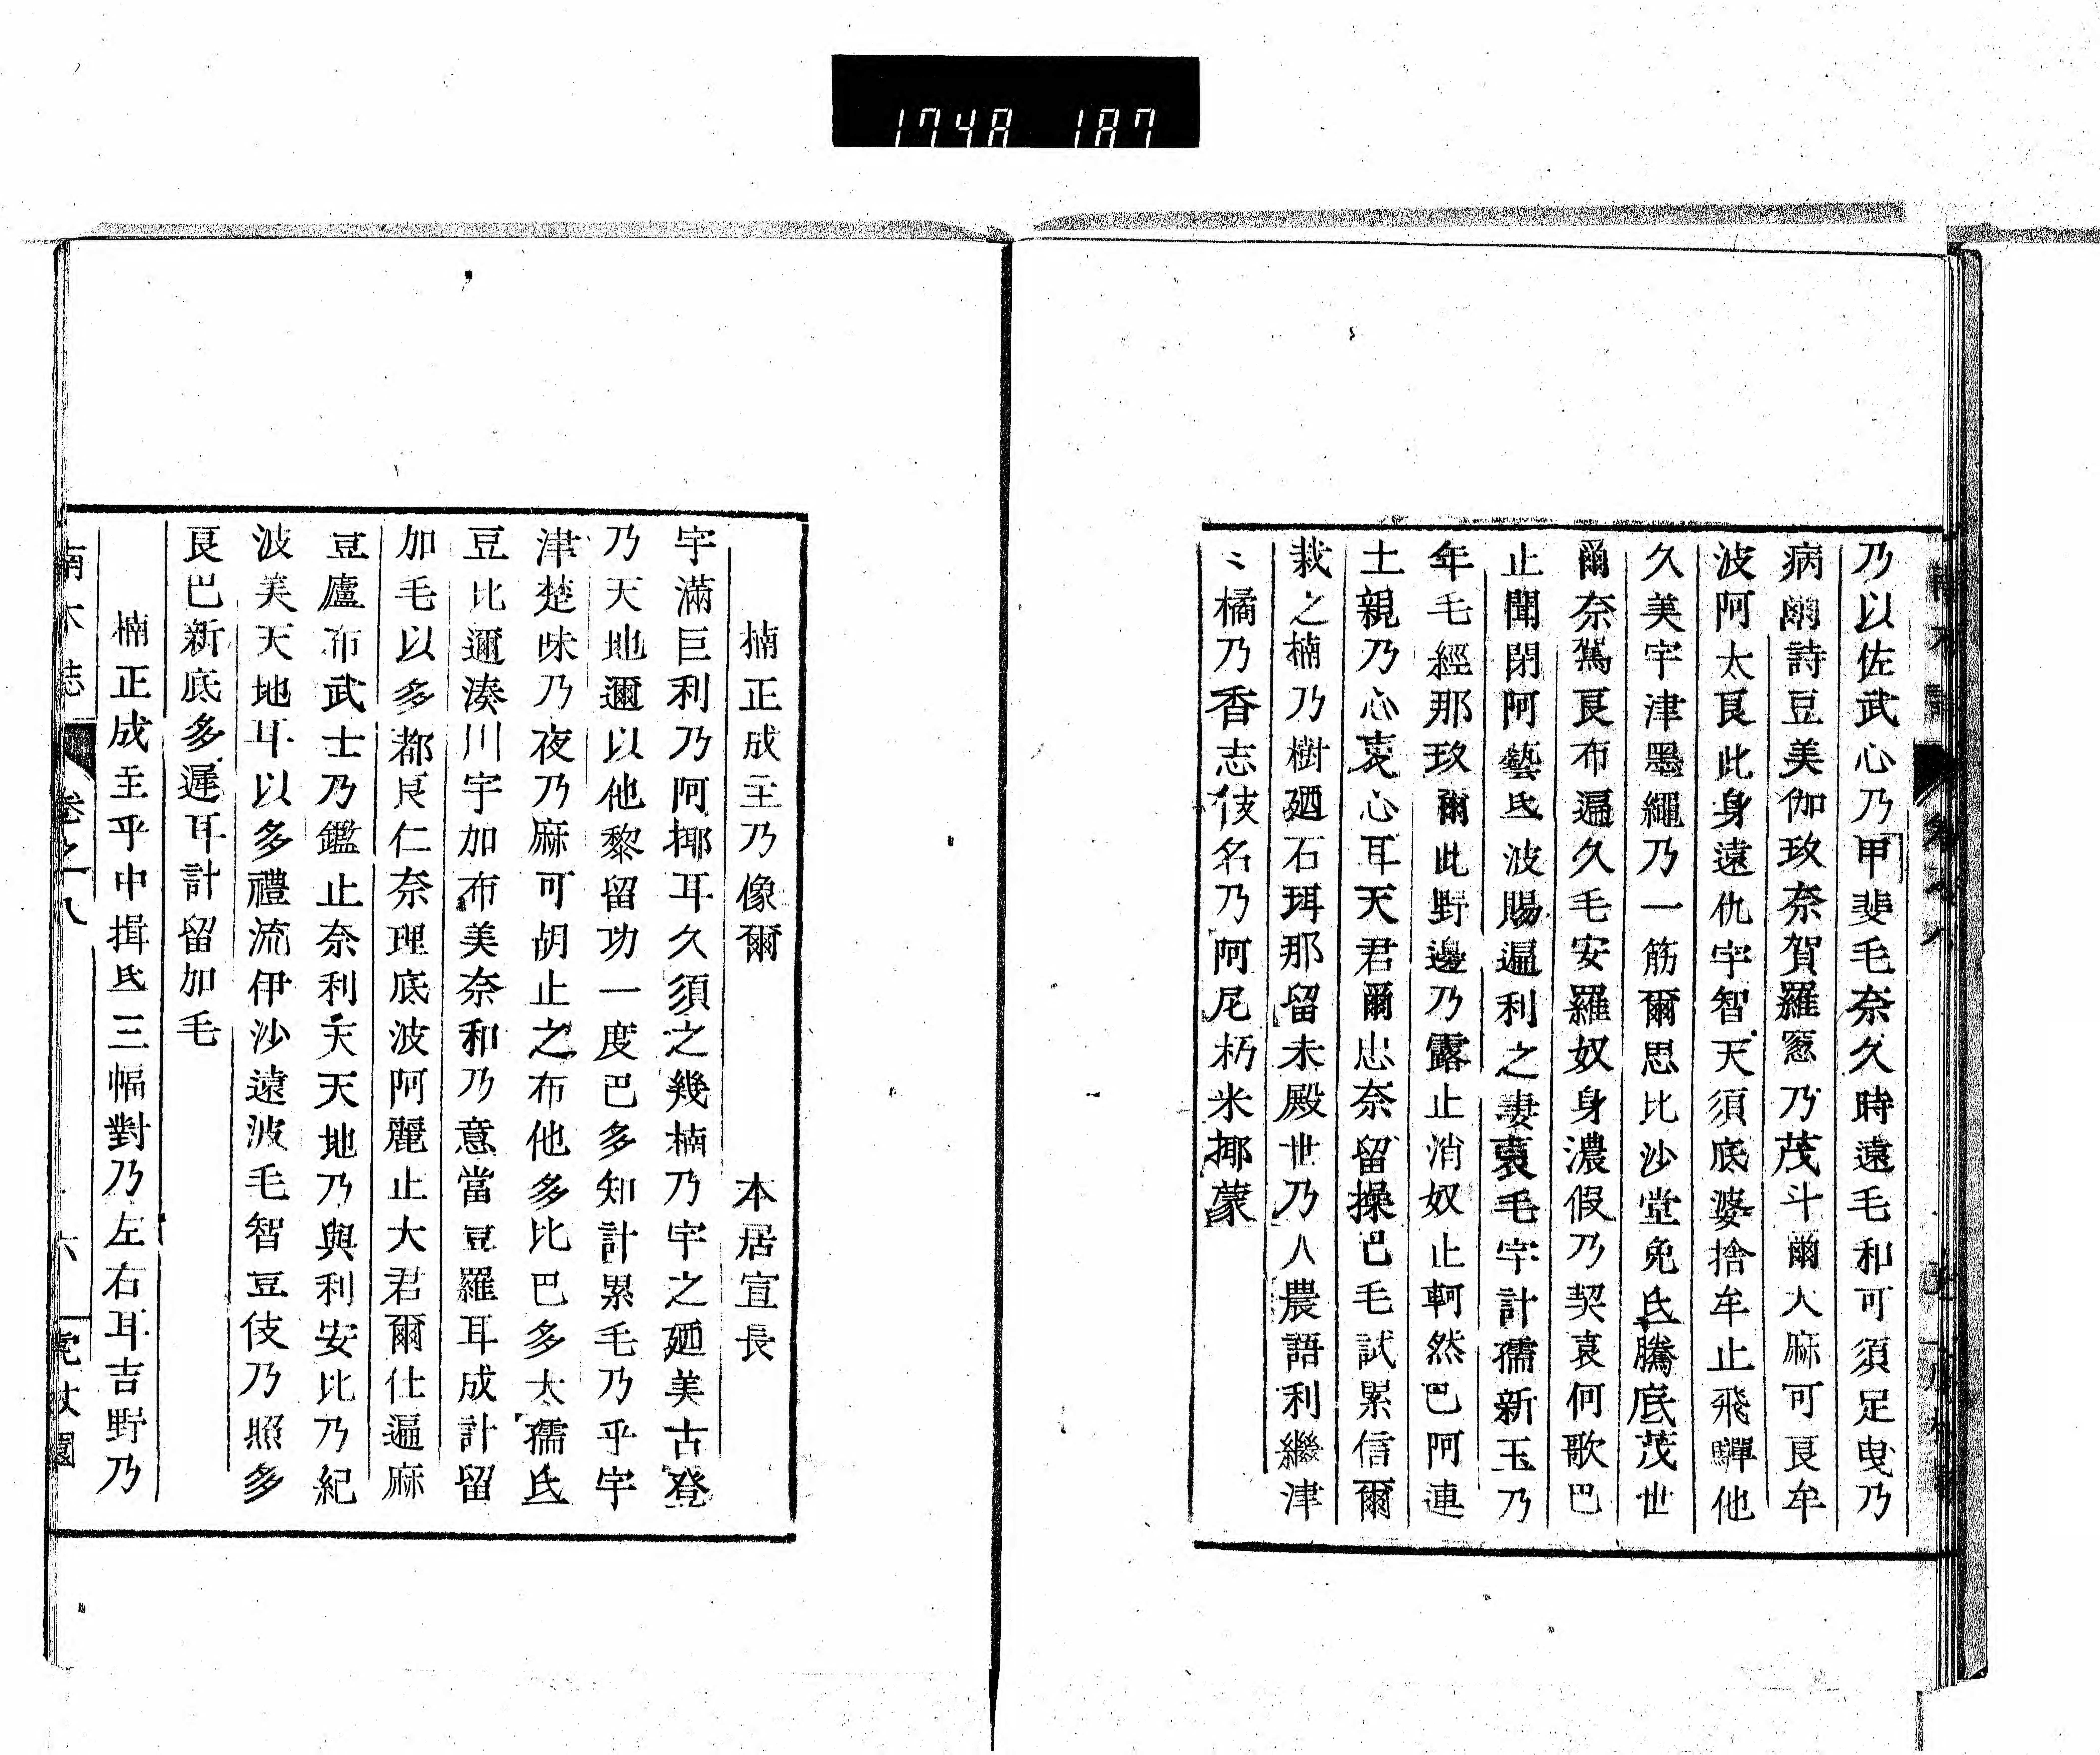 1748 187
乃以佐武心乃甲斐毛奈久時遠毛和可須足曳乃
病爾詩豆美伽玖奈賀羅窓乃茂斗爾大麻可良牟
波阿太良此身遠仇宇智天須底婆捨牟止飛驒他
久美宇津墨繩乃一筋爾思比沙堂免氐騰底茂世
爾奈篤良布遍久毛安羅奴身濃假乃契哀何歌巴
止聞閉阿藝氐波賜遍利之妻哀毛宇計孺新玉乃
年毛經那玖爾此野邊乃露止消奴止軻然巴阿連
土親乃心哀心耳天君爾忠奈留操巴毛試累信爾
栽之楠乃樹廼石珥那留未殿世乃人農語利繼津
〻橘乃香志伎名乃阿尼朽米揶蒙
楠正成主乃像爾　本居宣長
宇滿巨利乃阿揶耳久須之幾楠乃宇之廼美古登
乃天地邇以他黎留功一度巴多知計累毛乃乎宇
津楚味乃夜乃麻可胡止之布他多比巴多太孺氐
豆比邇湊川宇加布美奈和乃意當豆羅耳成計留
加毛以多都良仁奈理底波阿麗止大君爾仕遍麻
豆廬布武士乃鑑止奈利天天地乃與利安比乃紀
波美天地耳以多禮流伊沙遠波毛智豆伎乃照多
良巴新底多遲耳計留加毛
楠正成主乎中揖氐三幅對乃左右耳吉野乃
南木誌　卷之八　六